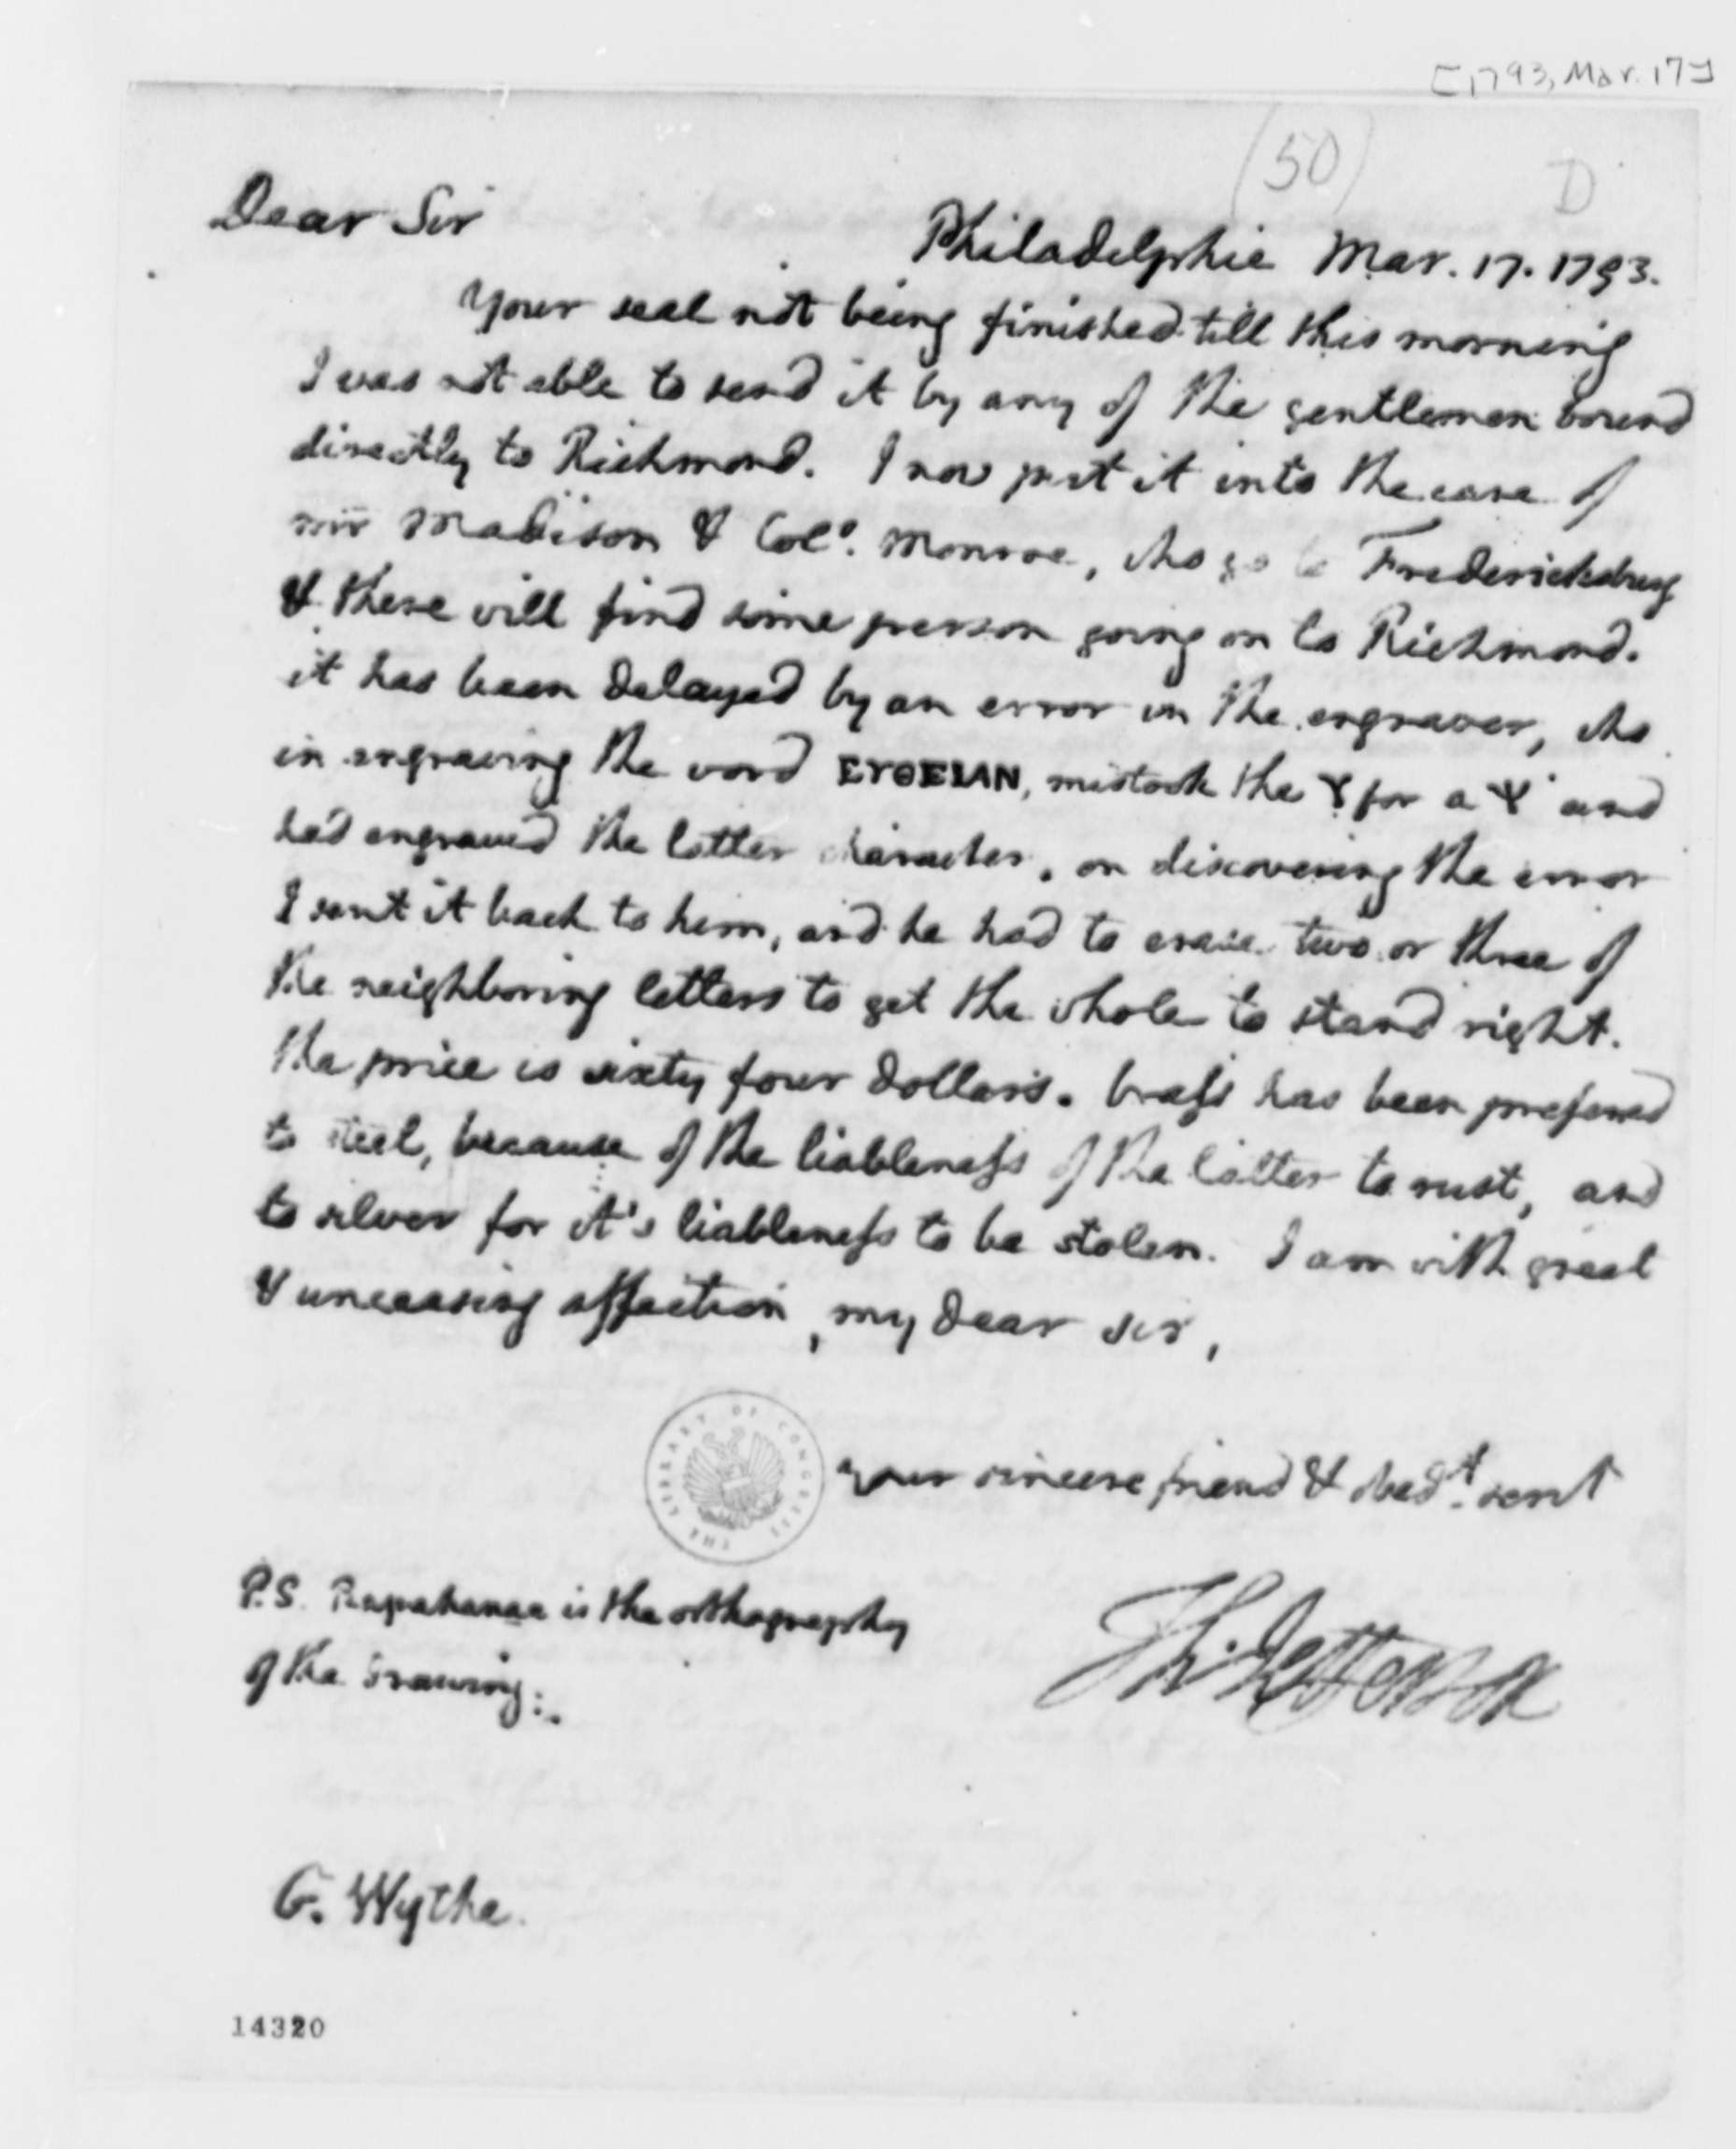 [1793, Mar. 17]
(50) D
Dear Sir
Philadelphia Mar. 17. 1793.
Your seal not being finished till this morning
I was not able to send it by any of the gentlemen bound
directly to Richmond. I now put it into the care of
mr Madison & Colo. Monroe, who go to Fredericksburg
& there will find some person going on to Richmond.
it has been delayed by an error in the engraver, who
in engraving the word ΕΥΘΕΙΑΝ, mistook the Υ for a Ψ and
had engraved the latter character. on discovering the error
I sent it back to him, and he had to erase two or three of
the neighboring letters to get the whole to stand right.
the price is sixty four dollars. brass has been preferred
to steel, because of the liableness of the latter to rust, and
to silver for it's liableness to be stolen. I am with great
& unceasing affection, my dear sir,
your sincere friend & obedt. servt
THE LIBRARY OF CONGRESS
P.S. Rapahanae is the orthography
of the drawing.
Th: Jefferson
G. Wythe.
14320